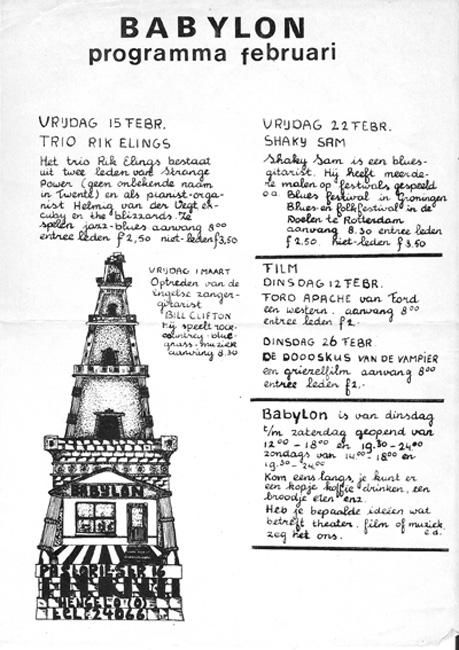 BABYLON
programma februari
VRIJDAG 15 FEBR.
TRIO RIK ELINGS
Het trio Rik Elings bestaat
uit twee leden van Strange
Power (geen onbekende naam
in Twente) en als pianist-orga-
nist Helmig van der Vegt ex-
cuby en the blizzards. Ze
spelen jazz-blues aanvang 8.00
entree leden f 2,50 niet-leden f 3,50
VRIJDAG 1 MAART
Optreden van de
engelse zanger-
gitarist
BILL CLIFTON
Hij speelt rock-
country-blue-
grass-muziek
aanvang 8.30
BABYLON
HENGELO (O)
TEL: 24066
VRIJDAG 22 FEBR.
SHAKY SAM
Shaky Sam is een blues-
gitarist. Hij heeft meerde-
re malen op festivals gespeeld
o.a. Blues festival in Groningen
Blues en folkfestival in de
Doelen te Rotterdam
aanvang 8.30 entree leden
f 2.50. niet-leden f 3.50
FILM
DINSDAG 12 FEBR.
FORD APACHE van Ford
een western. aanvang 8.00
entree leden f 2.-
DINSDAG 26 FEBR.
DE DOODSKUS VAN DE VAMPIER
een griezelfilm aanvang 8.00
entree leden f 2.-
Babylon is van dinsdag
t/m zaterdag geopend van
12.00 - 18.00 en 19.30 - 24.00
zondags van 14.00 - 18.00 en
19.30 - 24.00
Kom eens langs, je kunt er
een kopje koffie drinken, een
broodje eten enz.
Heb je bepaalde ideeën wat
betreft theater, film of muziek
e.d.
zeg het ons.